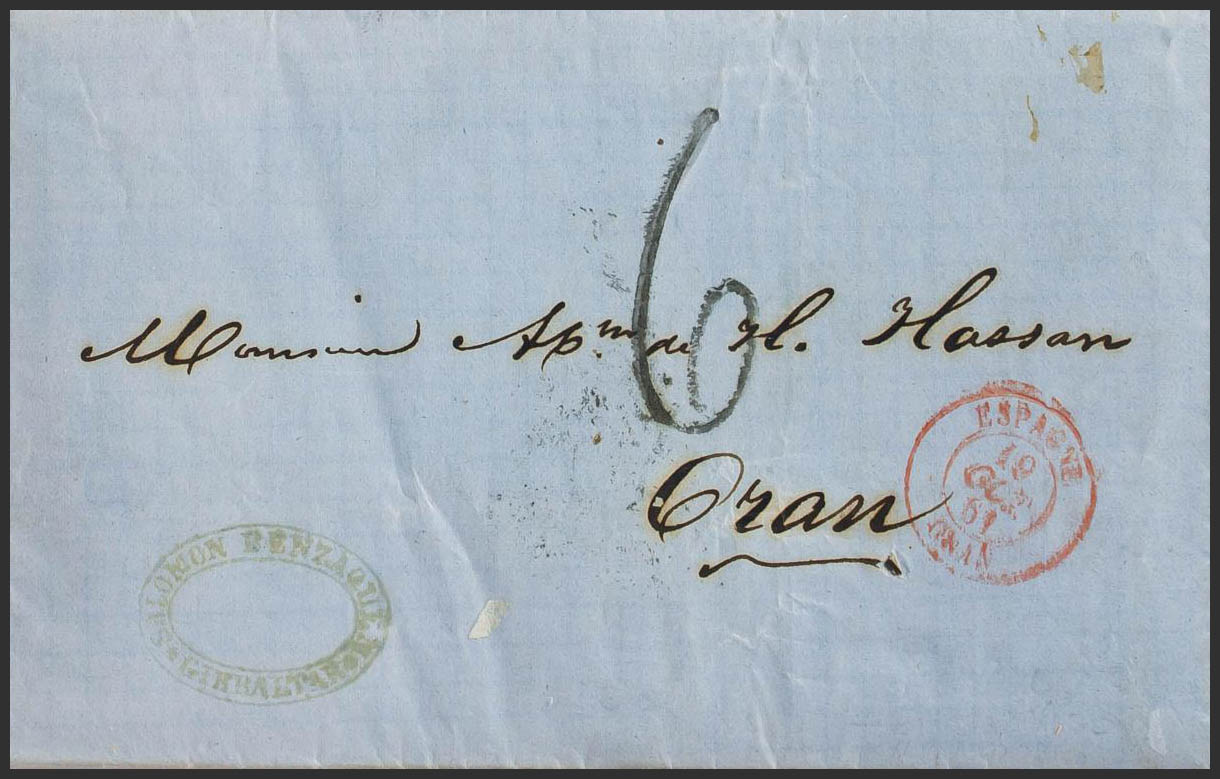 6
Monsieur Apm. de H. Hassan
Oran
ESPAGNE
19
61
SALOMON BENZAQUEN
GIBRALTAR